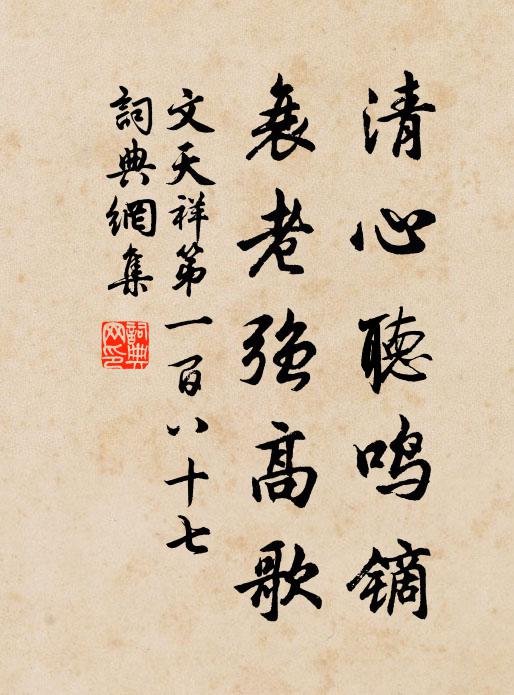 清心聴鸣镝
衰老強高歌
文天祥第一百八十七
詞典網集
詞典
网印